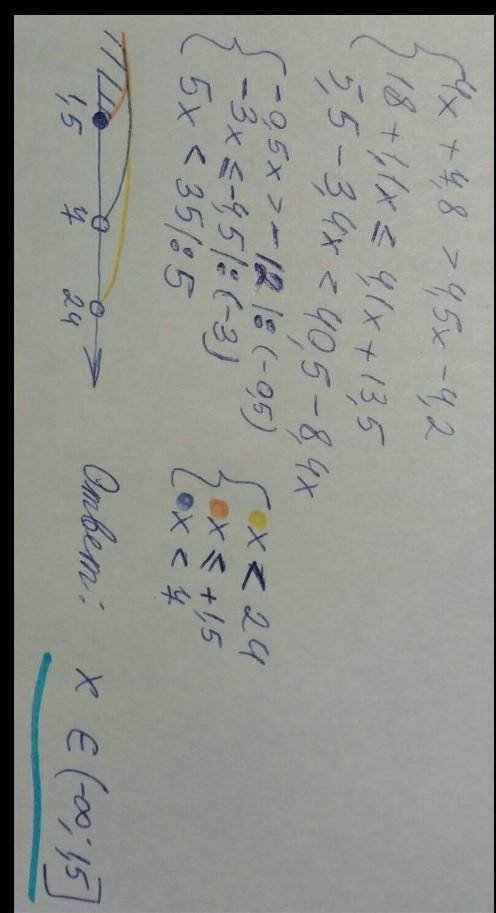 { 4x + 4,8 > 4,5x - 4,2
18 + 1,1x ≤ 4,1x + 13,5
5,5 - 3,4x < 40,5 - 8,4x
{ -0,5x > -12 |:(-0,5)
-3x ≤ -4,5 |:(-3)
5x < 35 |:5
{ x < 24
x ≤ +1,5
x < 7
1,5 7 24
Ответ: x ∈ (-∞; 1,5]